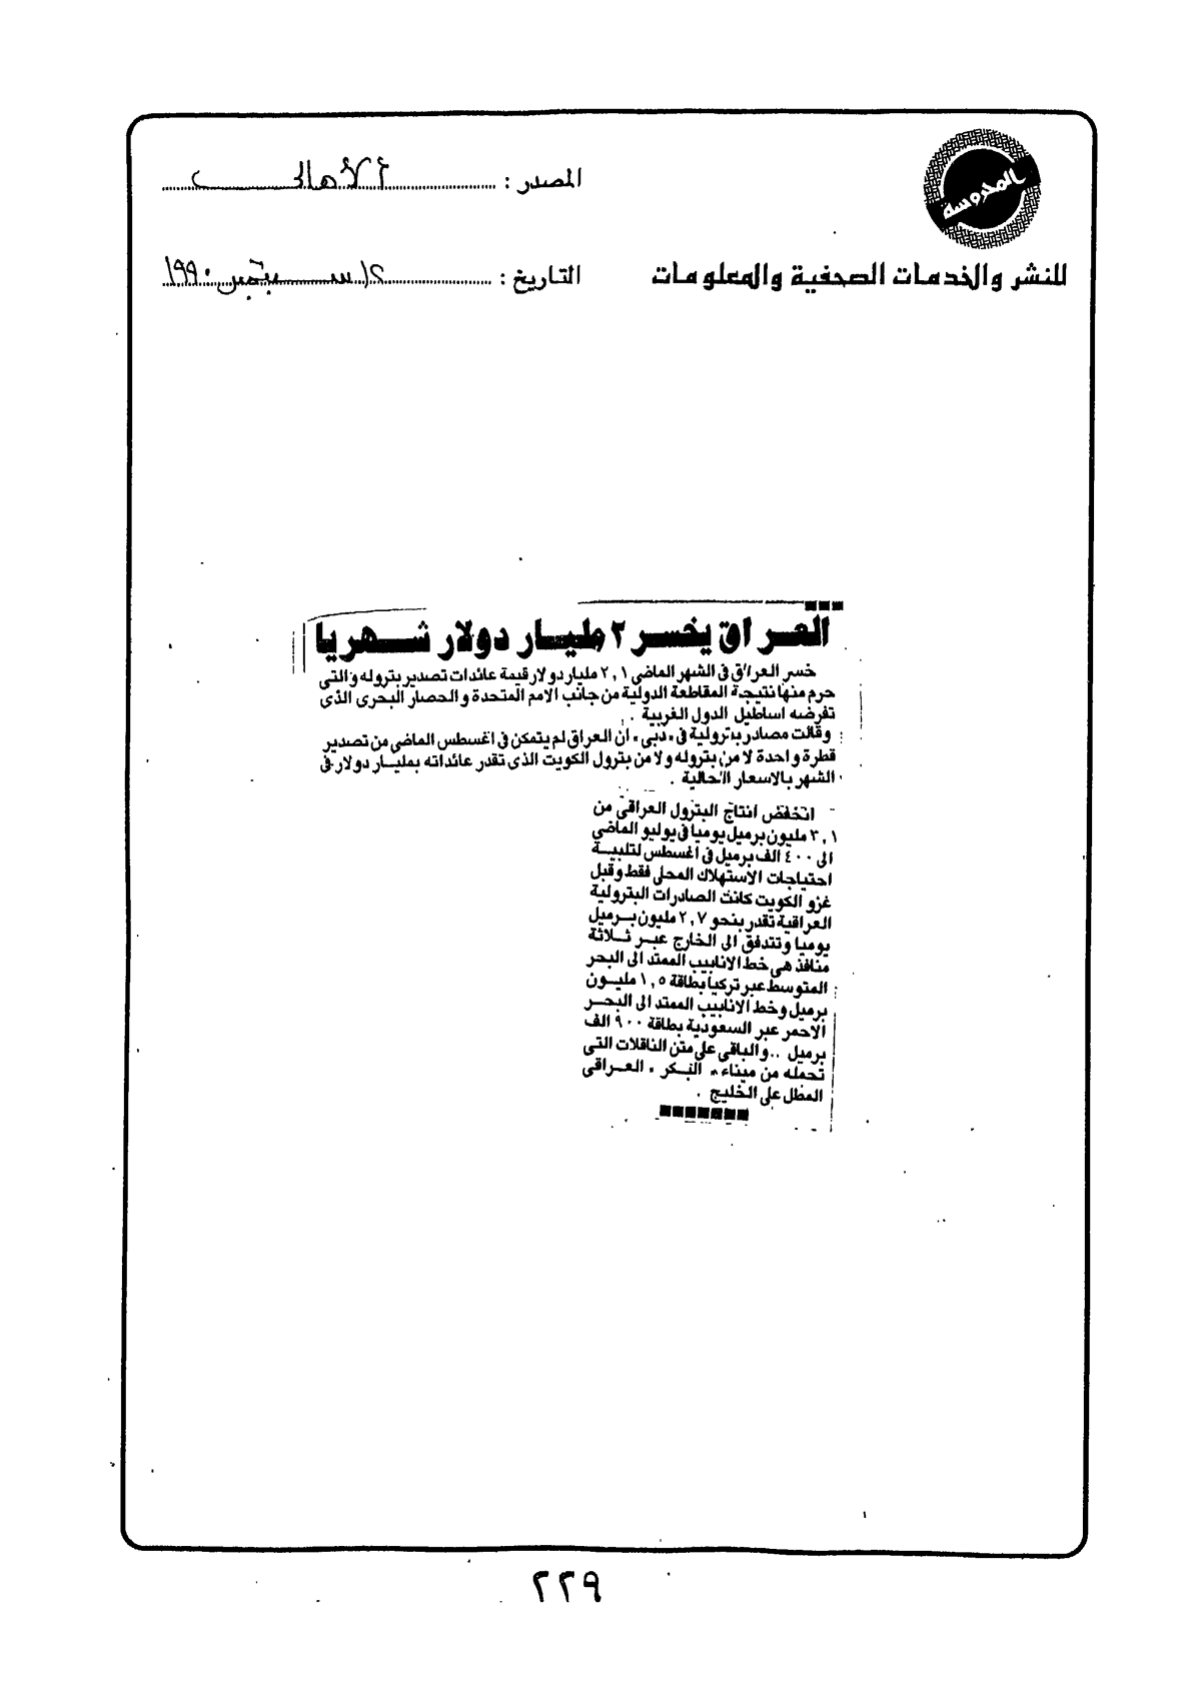 المحروسة
المصدر : الأهالى
للنشر والخدمات الصحفية والمعلومات
التاريخ : ١٢ سبتمبر ١٩٩٠
العراق يخسر ٢ مليار دولار شهريا
خسر العراق فى الشهر الماضى ٢,١ مليار دولار قيمة عائدات تصدير بتروله والتى
حرم منها نتيجة المقاطعة الدولية من جانب الامم المتحدة والحصار البحرى الذى
تفرضه اساطيل الدول الغربية .
وقالت مصادر بترولية فى «دبى» ان العراق لم يتمكن فى اغسطس الماضى من تصدير
قطرة واحدة لا من بتروله ولا من بترول الكويت الذى تقدر عائداته بمليار دولار فى
الشهر بالاسعار الحالية .
انخفض انتاج البترول العراقى من
٣,١ مليون برميل يوميا فى يوليو الماضى
الى ٤٠٠ الف برميل فى اغسطس لتلبية
احتياجات الاستهلاك المحلى فقط وقبل
غزو الكويت كانت الصادرات البترولية
العراقية تقدر بنحو ٢,٧ مليون برميل
يوميا وتتدفق الى الخارج عبر ثلاثة
منافذ هى خط الانابيب الممتد الى البحر
المتوسط عبر تركيا بطاقة ١,٥ مليون
برميل وخط الانابيب الممتد الى البحر
الاحمر عبر السعودية بطاقة ٩٠٠ الف
برميل .. والباقى على متن الناقلات التى
تحمله من ميناء « البكر » العراقى
المطل على الخليج .
٢٢٩